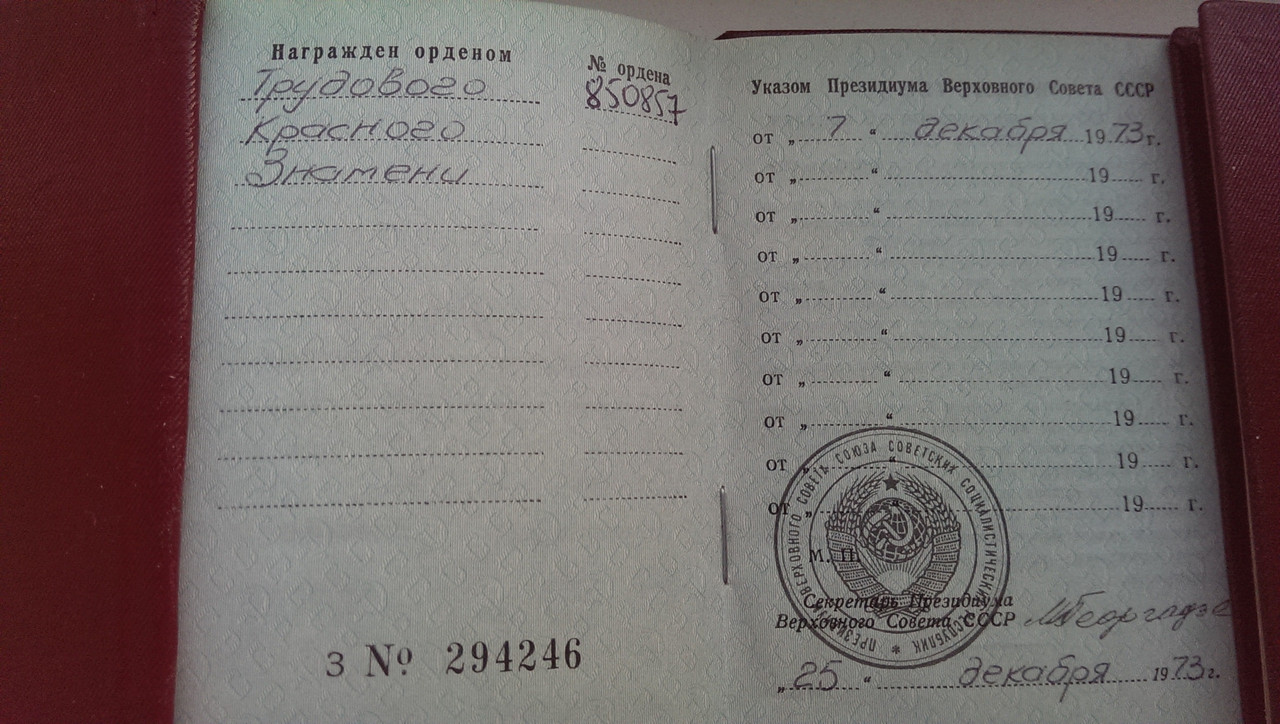 Награжден орденом
Трудового
Красного
Знамени
№ ордена
850857
З № 294246
Указом Президиума Верховного Совета СССР
от „ 7 “ декабря 1973 г.
от „ “ 19 г.
от „ “ 19 г.
от „ “ 19 г.
от „ “ 19 г.
от „ “ 19 г.
от „ “ 19 г.
от „ “ 19 г.
от „ “ 19 г.
от „ “ 19 г.
ПРЕЗИДИУМ ВЕРХОВНОГО СОВЕТА СОЮЗА СОВЕТСКИХ СОЦИАЛИСТИЧЕСКИХ РЕСПУБЛИК *
М. П.
Секретарь Президиума
Верховного Совета СССР МГеоргадзе
„ 25 “ декабря 1973 г.